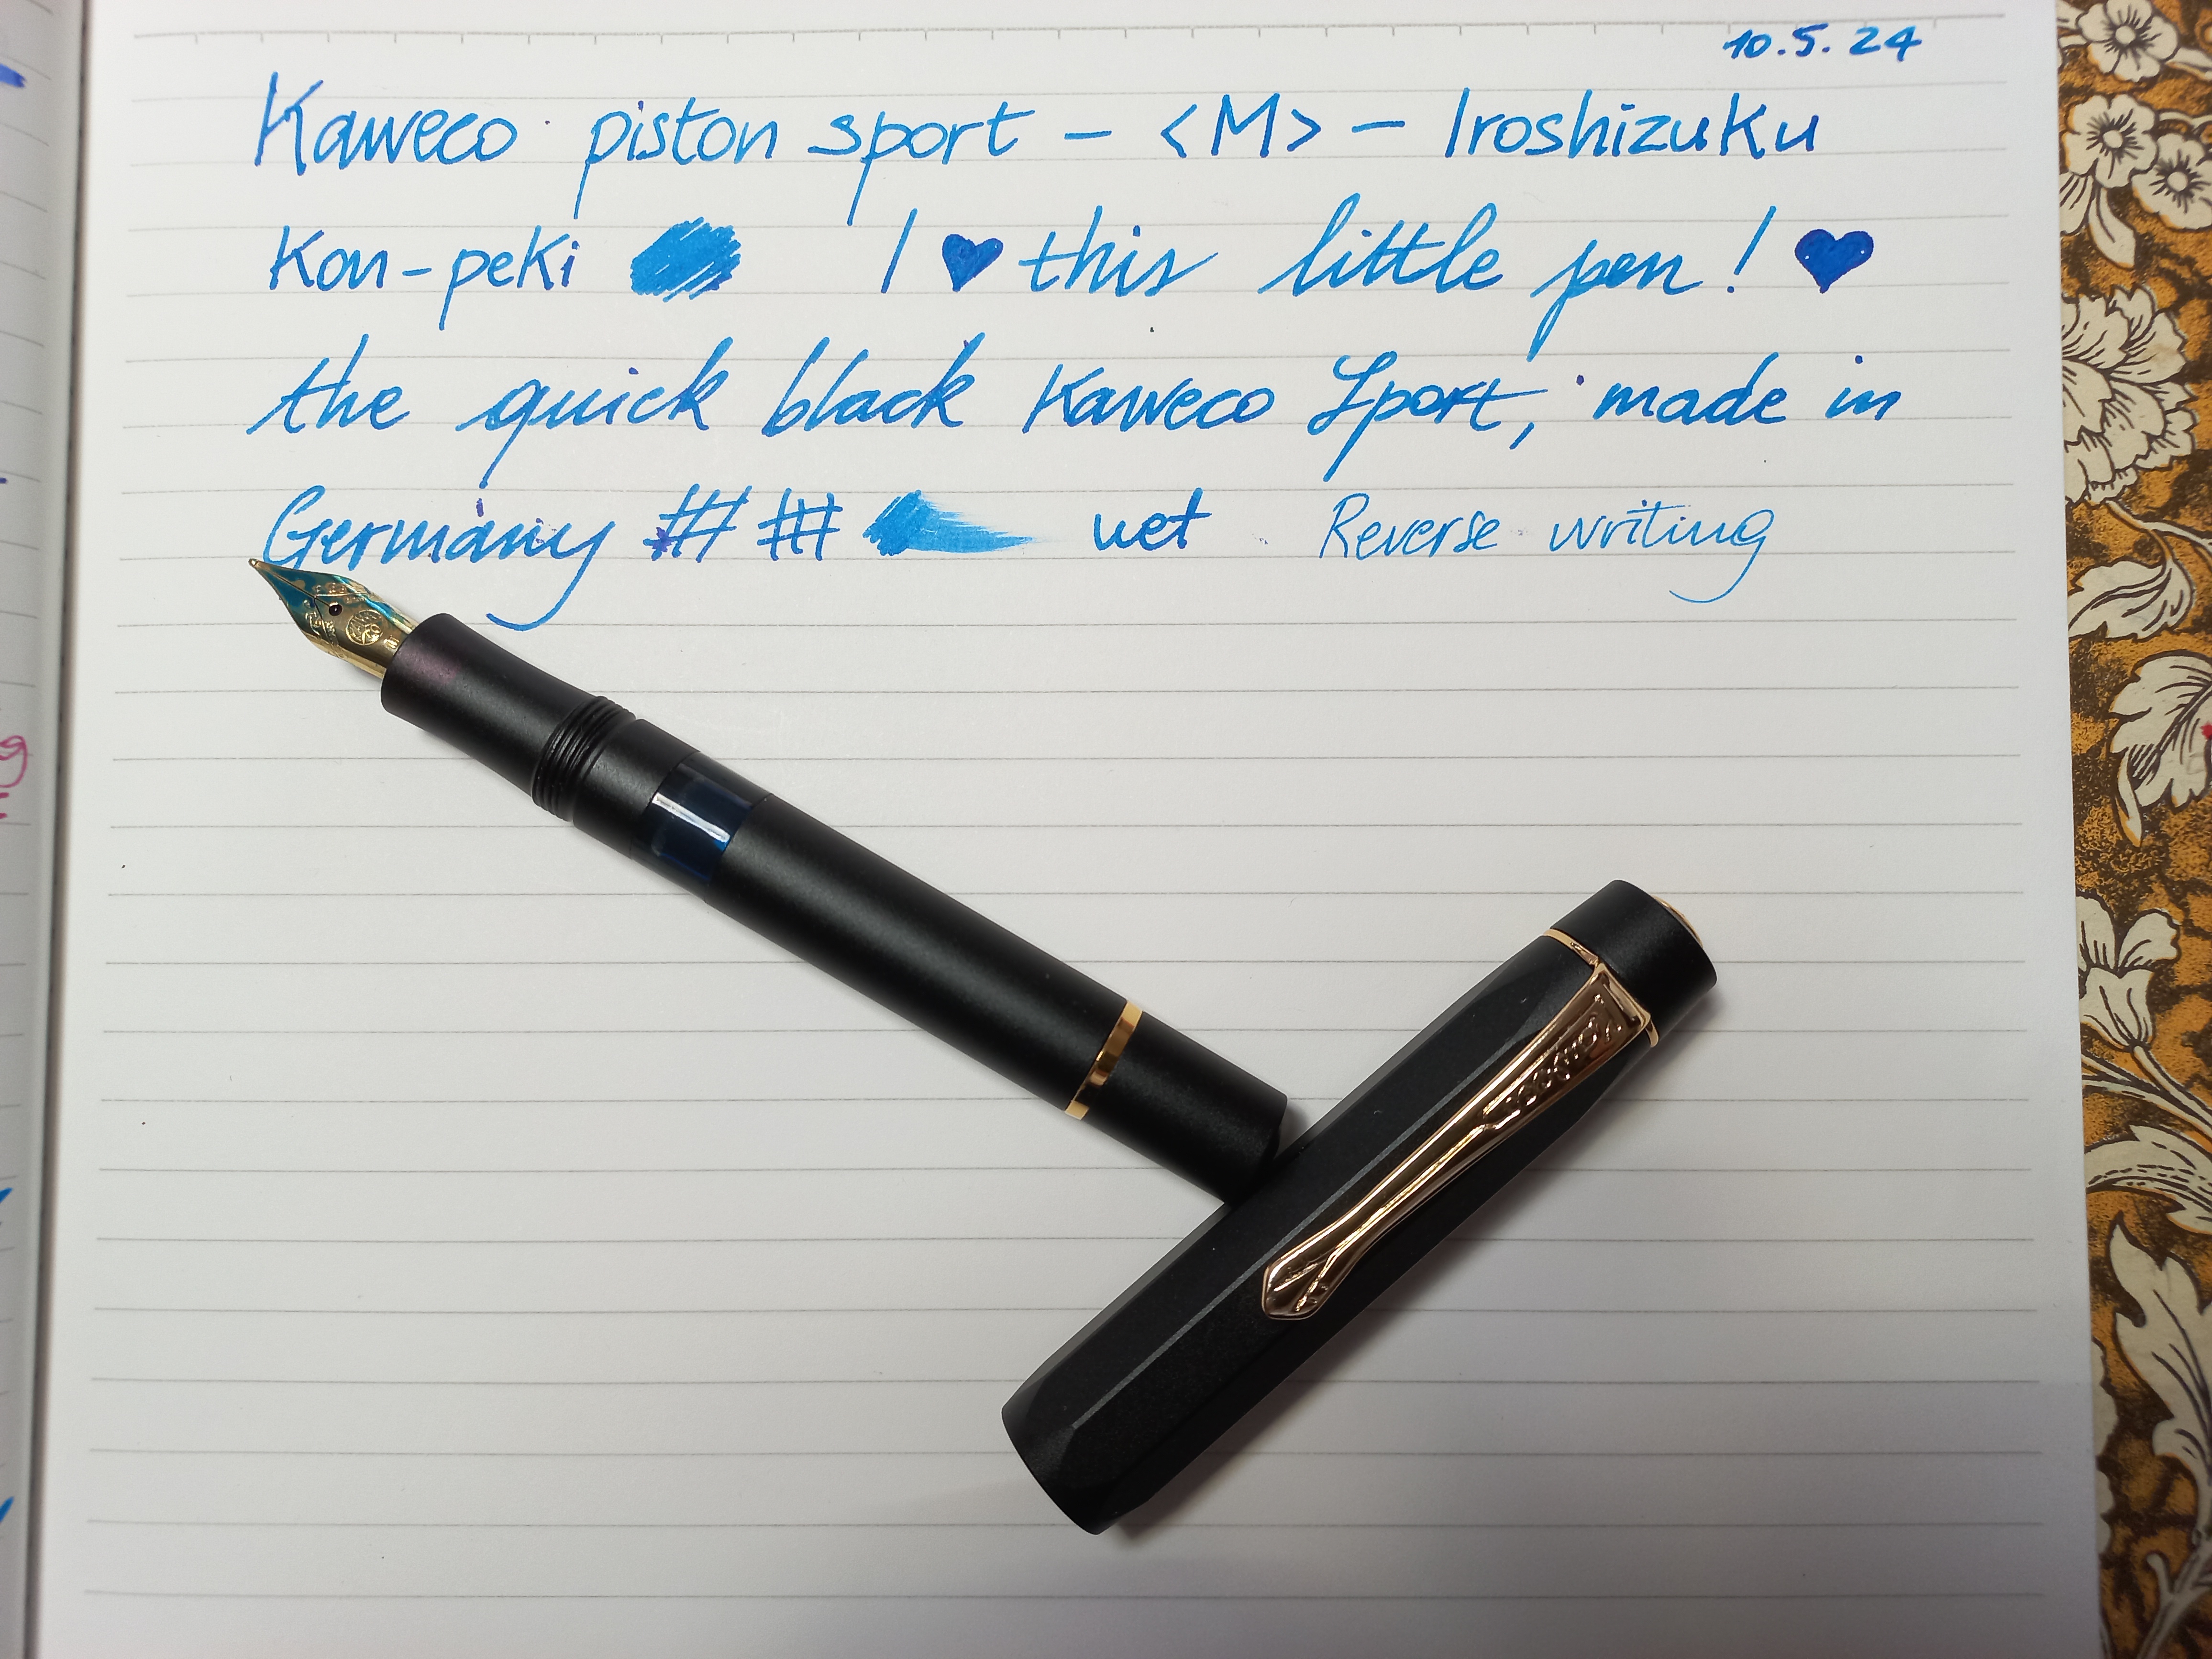 10.5.24
Kaweco piston sport – <M> – Iroshizuku
Kon-peki I ♥ this little pen! ♥
the quick black Kaweco Sport, made in
Germany ## ## wet Reverse writing
Kaweco